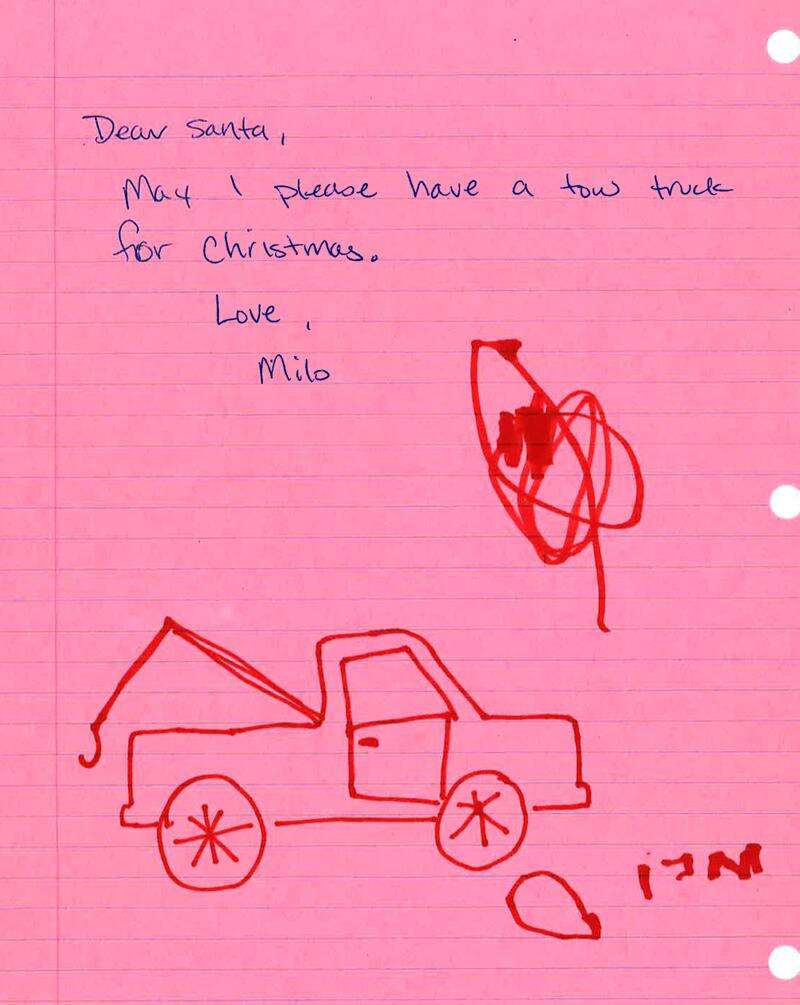 Dear Santa,
May I please have a tow truck
for Christmas.
Love,
Milo